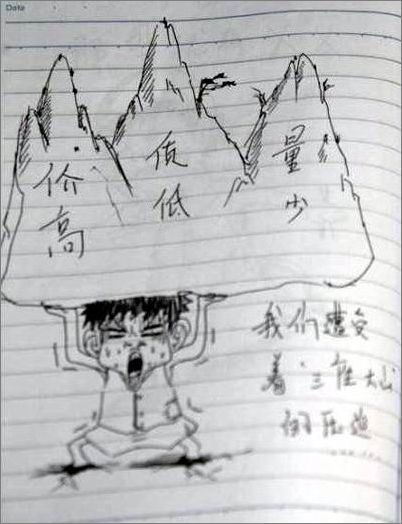 Date
价高
质低
量少
我们遭受
着“三座大山
的压迫
……